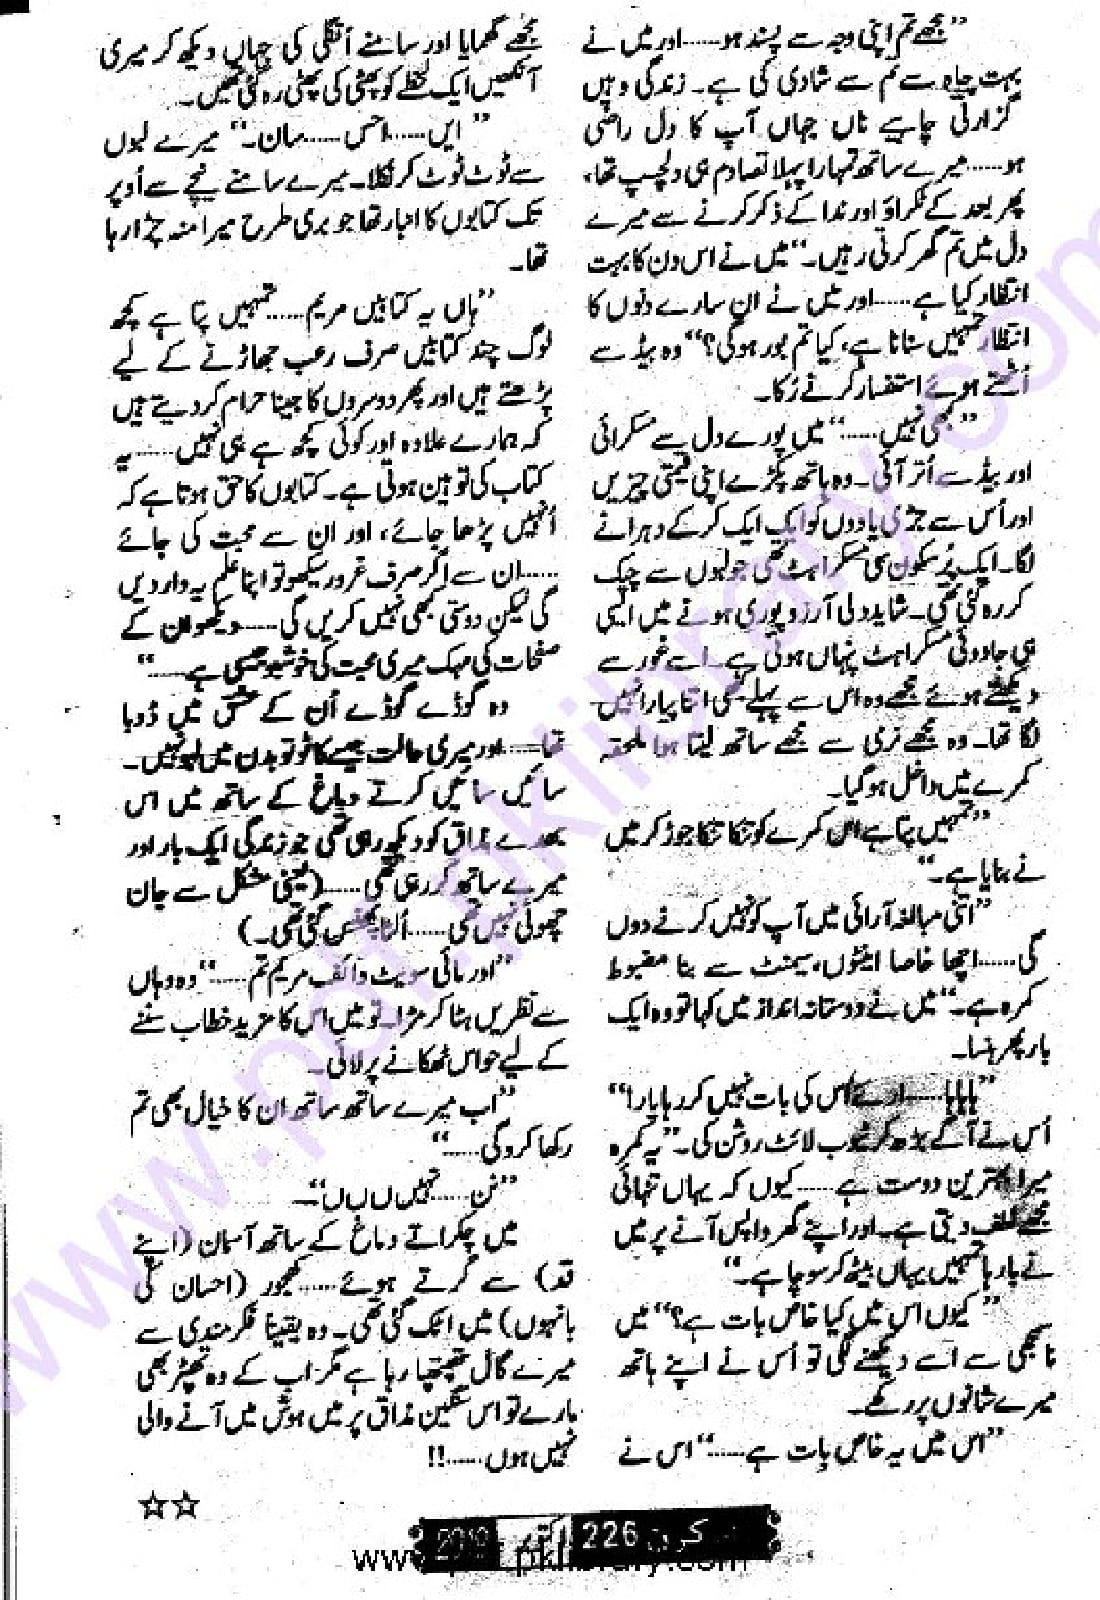 ”مجھے تم اپنی وجہ سے پسند ہو......اور میں نے
بہت چاہ سے تم سے شادی کی ہے۔ زندگی وہیں
گزارنی چاہیے ناں جہاں آپ کا دل راضی
ہو......میرے ساتھ تمہارا پہلا تصادم ہی دلچسپ تھا،
پھر بعد کے ٹکراؤ اور ندا کے ذکر کرنے سے میرے
دل میں تم گھر کرتی رہیں۔“ میں نے اس دن کا بہت
انتظار کیا ہے......اور میں نے ان سارے دنوں کا
انتظار تمہیں سنانا ہے، کیا تم بور ہوگی؟“ وہ بیڈ سے
اُٹھتے ہوئے استفسار کرنے رُکا۔
”بھی نہیں......“ میں پورے دل سے مسکرائی
اور بیڈ سے اُتر آئی۔ وہ ہاتھ پکڑے اپنی قیمتی چیزیں
اور اُس سے جڑی یادوں کو ایک ایک کر کے دہرانے
لگا۔ ایک پُرسکون سی مسکراہٹ تھی جو لبوں سے چپک
کر رہ گئی تھی۔ شاید دلی آرزو پوری ہونے میں ایسی
ہی جادوئی مسکراہٹ پنہاں ہوتی ہے۔ اسے غور سے
دیکھتے ہوئے مجھے وہ اس سے پہلے کبھی اتنا پیارا نہیں
لگا تھا۔ وہ مجھے نرمی سے مجھے ساتھ لیتا ہوا ملحقہ
کمرے میں داخل ہوگیا۔
”تمہیں پتا ہے اس کمرے کو تنکا تنکا جوڑ کر میں
نے بنایا ہے۔“
”اتنی مبالغہ آرائی میں آپ کو نہیں کرنے دوں
گی......اچھا خاصا اینٹوں، سیمنٹ سے بنا مضبوط
کمرہ ہے۔“ میں نے دوستانہ انداز میں کہا تو وہ ایک
بار پھر ہنسا۔
”ہاہاہا......ارے اُس کی بات نہیں کر رہا یار!“
اُس نے آگے بڑھ کر ٹیوب لائٹ روشن کی۔ ”یہ کمرہ
میرا بہترین دوست ہے......کیوں کہ یہاں تنہائی
مجھے لطف دیتی ہے۔ اور اپنے گھر واپس آنے پر میں
نے بارہا تمہیں یہاں بیٹھ کر سوچا ہے۔“
”کیوں اس میں کیا خاص بات ہے؟“ میں
ناسمجھی سے اسے دیکھنے لگی تو اُس نے اپنے ہاتھ
میرے شانوں پر رکھے۔
”اس میں یہ خاص بات ہے......“ اس نے
مجھے گھمایا اور سامنے اُنگلی کی جہاں دیکھ کر میری
آنکھیں ایک لحظے کو پھٹی کی پھٹی رہ گئی تھیں۔
”ایں......احس......سان۔“ میرے لبوں
سے ٹوٹ ٹوٹ کر نکلا۔ میرے سامنے نیچے سے اُوپر
تک کتابوں کا انبار تھا جو بری طرح میرا منہ چڑا رہا
تھا۔
”ہاں یہ کتابیں مریم......تمہیں پتا ہے کچھ
لوگ چند کتابیں صرف رعب جھاڑنے کے لیے
پڑھتے ہیں اور پھر دوسروں کا جینا حرام کر دیتے ہیں
کہ ہمارے علاوہ اور کوئی کچھ ہے ہی نہیں......یہ
کتاب کی توہین ہوتی ہے۔ کتابوں کا حق ہوتا ہے کہ
اُنہیں پڑھا جائے، اور ان سے محبت کی جائے
......ان سے اگر صرف غرور سیکھو تو اپنا علم یہ وار دیں
گی لیکن دوستی بھی نہیں کریں گی......دیکھو ان کے
صفحات کی مہک میری محبت کی خوشبو جیسی ہے......“
وہ گوڈے گوڈے اُن کے عشق میں ڈوبا
تھا......اور میری حالت جیسے کاٹو تو بدن میں لہو نہیں۔
سائیں سائیں کرتے دماغ کے ساتھ میں اس
بھدے مذاق کو دیکھ رہی تھی جو زندگی ایک بار اور
میرے ساتھ کر رہی تھی......(یعنی مشکل سے جان
چھوٹی نہیں تھی......اُلٹا پھنس گئی تھی۔)
”اور مائی سویٹ وائف مریم تم......“ وہ وہاں
سے نظریں ہٹا کر مڑا۔ تو میں اس کا مزید خطاب سننے
کے لیے حواس ٹھکانے پر لائی۔
”اب میرے ساتھ ساتھ ان کا خیال بھی تم
رکھا کرو گی......“
”نن......نہیں ں ں ں“۔
میں چکراتے دماغ کے ساتھ آسمان (اپنے
قد) سے گرتے ہوئے......کھجور (احسان کی
بانہوں) میں اٹک گئی تھی۔ وہ یقیناً فکرمندی سے
میرے گال تھپتھپا رہا ہے مگر اب کے وہ تھپڑ بھی
مارے تو اس سنگین مذاق پر میں ہوش میں آنے والی
نہیں ہوں......!!
☆☆
کرن 226 اکتوبر 2019
www.pdf.pklibrary.com
www.pdf.pklibrary.com